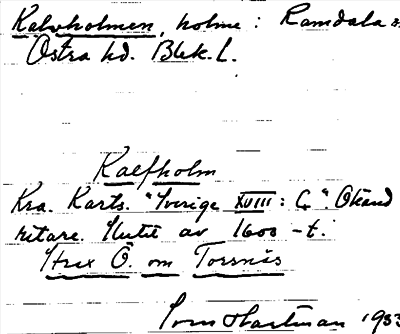 Kalvholmen, holme: Ramdala s.
Östra hd. Blek. L.
Kalfholm
Kra. Kartb. "Sverige XVIII: C". Okänd
ritare. Slutet av 1600-t.
Strax Ö. om Torsnäs
Sven Hartman 1933